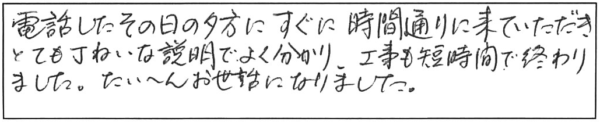 電話したその日の夕方にすぐに時間通りに来ていただき
とても丁ねいな説明でよく分かり、工事も短時間で終わり
ました。たいへんお世話になりました。